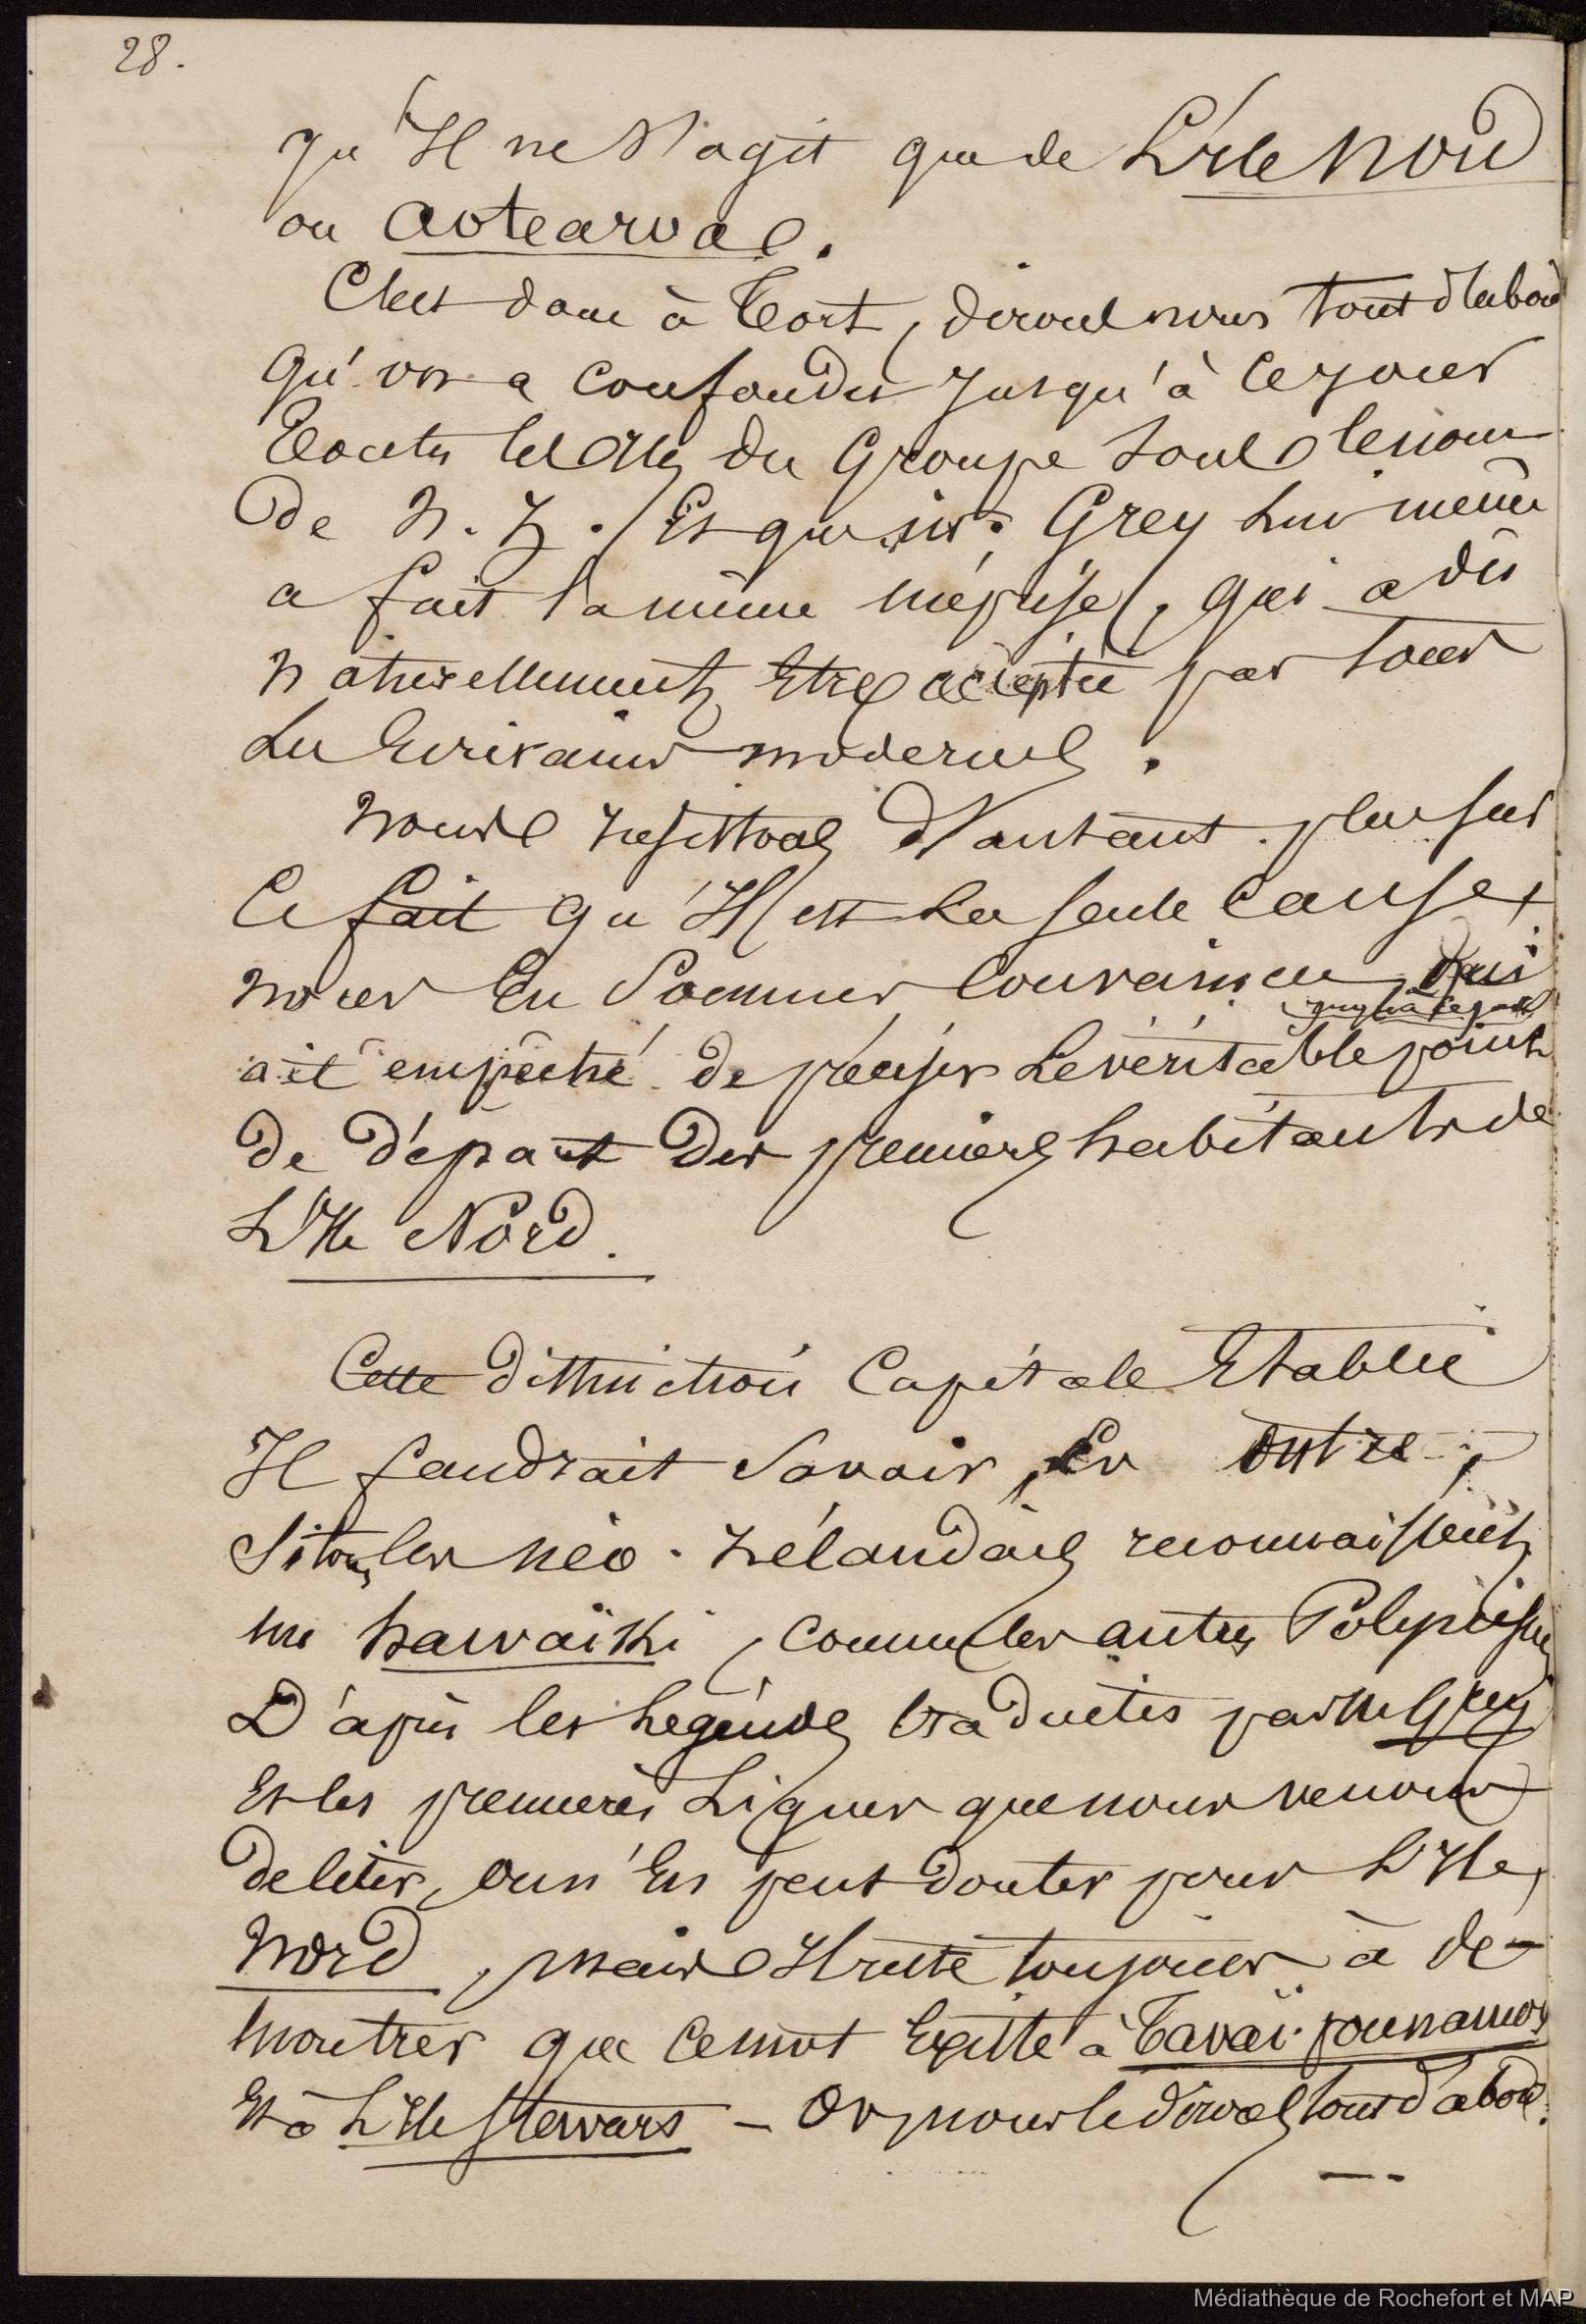 28.
qu'Il ne s'agit que de L'île Nord
ou Aotearoa.
C'est donc à tort, dirons nous tout d'abord
qu'on a confondu jusqu'à ce jour
toutes les Iles du Groupe sous le nom
de N. Z. Et que sir Grey lui même
a fait la même méprise, qui a dû
naturellement être acceptée par tous
les Ecrivains modernes.
Nous insistons d'autant plus sur
ce fait qu'Il est la seule cause,
nous en sommes convaincu, qui
jusqu'à ce jour
ait empêché de préciser le véritable point
de départ des premiers habitants de
L'Ile Nord.
Cette distinction Capitale Etablie
Il faudrait savoir, En outre,
si tous les néo-zélandais reconnaissent
un hawaïki, comme les autres Polynésiens
D'après les Légendes traduites par Mr Grey
Et les premières Lignes que nous venons
de citer, on n'En peut douter pour L'Ile
Nord, mais Il reste toujours à dé-
montrer que ce mot Existe à Tavaï-pounamou
Et à L'Ile Stewars - Or, nous le dirons tout d'abord.
Médiathèque de Rochefort et MAP